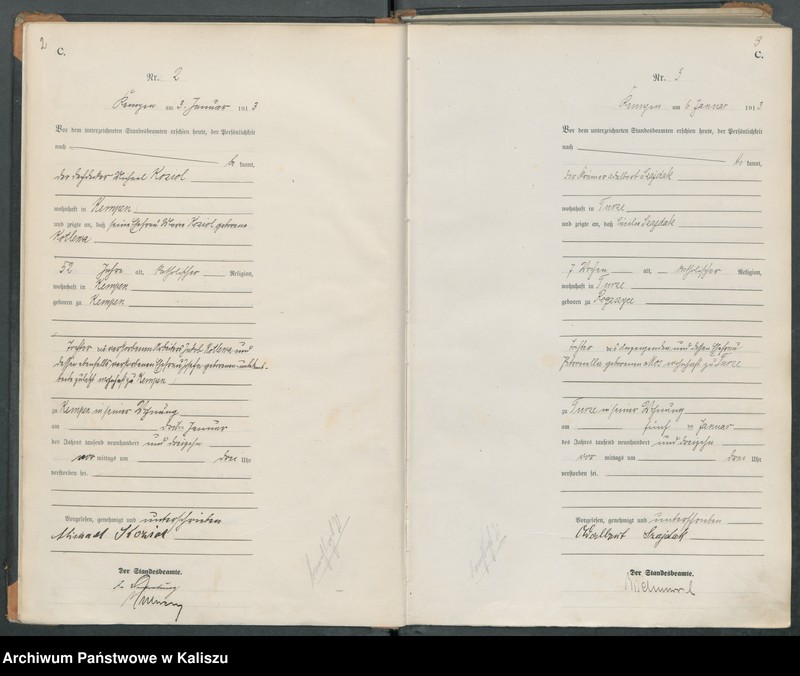 2
C.
Nr. 2
Kempen am 3. Januar 1913
Vor dem unterzeichneten Standesbeamten erschien heute, der Persönlichkeit
nach
be kannt,
der Dachdecker Michael Koziol
wohnhaft in Kempen
und zeigte an, daß seine Ehefrau Marie Koziol geborene
Kotlena
52 Jahre alt, katholischer Religion,
wohnhaft in Kempen
geboren zu Kempen
Tochter des verstorbenen Arbeiters Kotlena und
dessen ebenfalls verstorbenen Ehefrau geborenen
zuletzt wohnhaft zu Kempen
zu Kempen in seiner Wohnung
am dritten Januar
des Jahres tausend neunhundert und dreizehn
vor mittags um drei Uhr
verstorben sei.
Vorgelesen, genehmigt und unterschrieben
Michael Koziol
Der Standesbeamte.
In Vertretung
3
C.
Nr. 3
Kempen am 6. Januar 1913
Vor dem unterzeichneten Standesbeamten erschien heute, der Persönlichkeit
nach
be kannt,
der Krämer Adalbert Szajdak
wohnhaft in Turze
und zeigte an, daß Cecilie Szajdak
7 Wochen alt, katholischer Religion,
wohnhaft in Turze
geboren zu
Tochter des Anzeigenden und dessen Ehefrau
Petronella geborenen wohnhaft zu Turze
zu Turze in seiner Wohnung
am fünften Januar
des Jahres tausend neunhundert und dreizehn
vor mittags um drei Uhr
verstorben sei.
Vorgelesen, genehmigt und unterschrieben
Adalbert Szajdak
Der Standesbeamte.
Archiwum Państwowe w Kaliszu